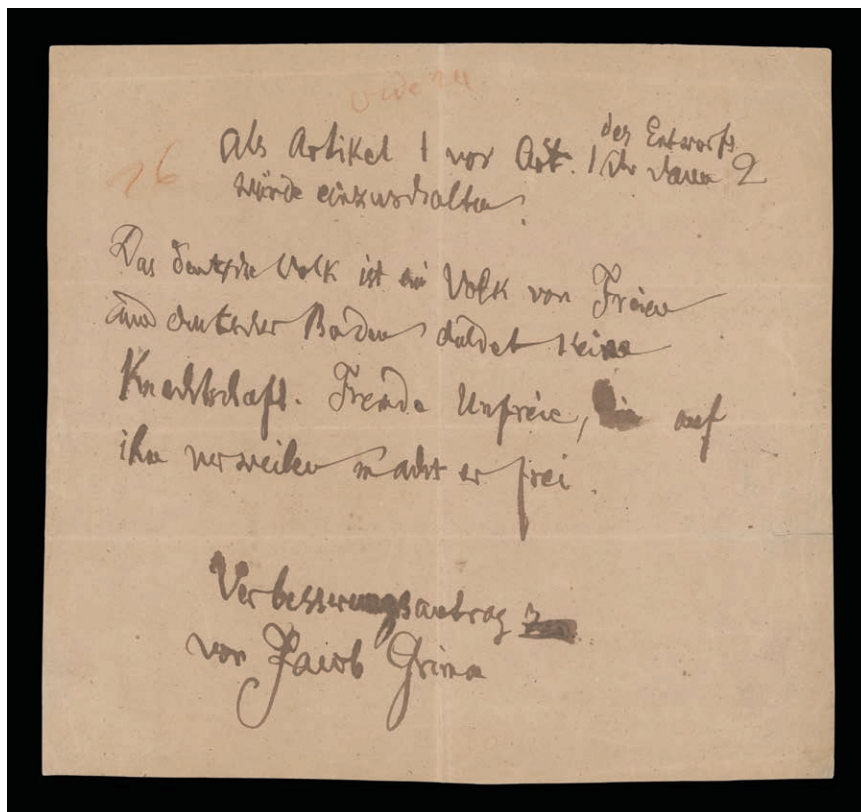 16
des Entwurfs
Als Artikel 1 vor Art. 1 2
würde einzuschalten
Das deutsche Volk ist ein Volk von Freien
und deutscher Boden duldet keine
Knechtschaft. Fremde Unfreie, die auf
ihm verweilen macht er frei.
Verbesserungsantrag
von Jacob Grimm